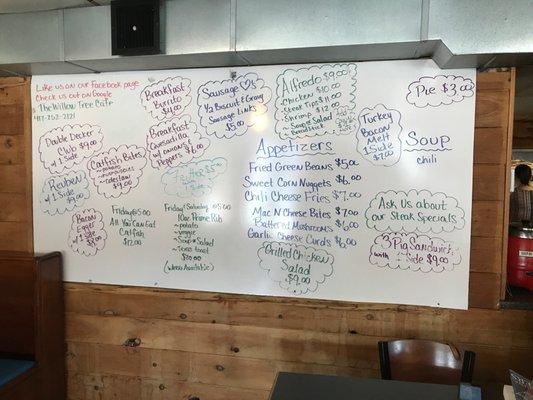 Like us on our Facebook page
Check us out on Google
@ The Willow Tree Cafe
417-752-2121
Double Decker
Club $9.00
w/ 1 Side
Reuben
w/ 1 Side
Catfish Bites
coleslaw
$9.00
Bacon
Egger
w/ 1 Side
$9.00
Breakfast
Burrito
$4.00
Breakfast
Quesadilla
w/ onions &
Peppers
$6.00
Friday @5:00
All You Can Eat
Catfish
$12.00
Sausage
1/2 Biscuit & Gravy
& Sausage Links
$5.00
Friday & Saturday @5:00
10oz Prime Rib
~ potato
~ veggie
~ Soup or Salad
~ Texas toast
$20.00
(While Available)
Alfredo $9.00
Chicken $10.00
Steak Tips $11.00
Shrimp $12.00
Soup or Salad
Breadstick
Appetizers
Fried Green Beans $5.00
Sweet Corn Nuggets $6.00
Chili Cheese Fries $7.00
Mac N Cheese Bites $7.00
Battered Mushrooms $6.00
Garlic Cheese Curds $6.00
Grilled Chicken
Salad
$9.00
Turkey
Bacon Melt
1 Side
$7.00
Pie $3.00
Soup
chili
Ask Us about
our Steak Specials
3 Pig Sandwich
with 1 Side $9.00